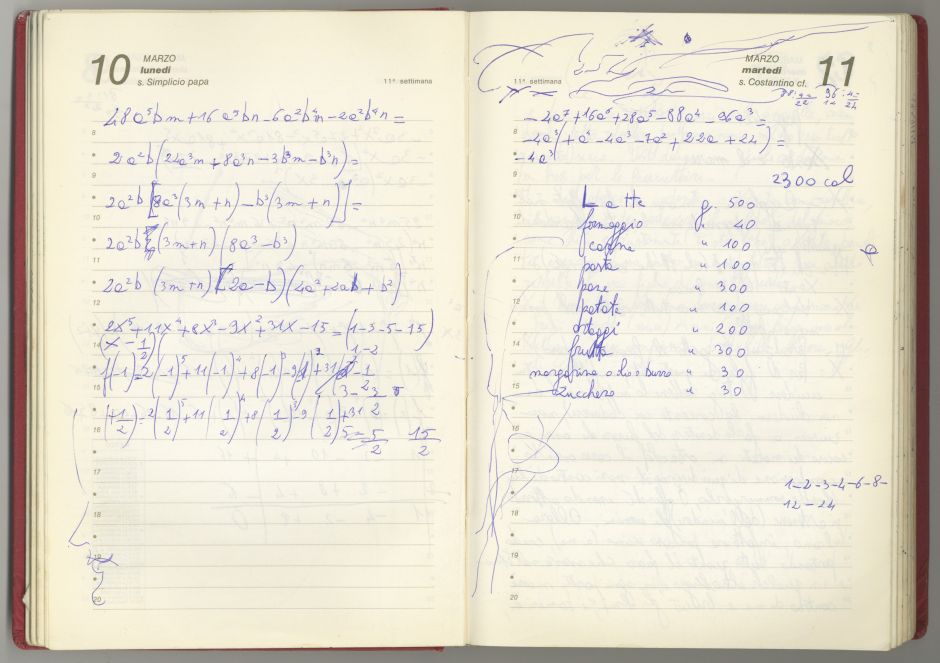 10
MARZO
lunedì
s. Simplicio papa
11ª settimana
48a⁵bm + 16a⁵bn - 6a²b⁴m - 2a²b⁴n =
2a²b(24a³m + 8a³n - 3b³m - b³n) =
2a²b[8a³(3m+n) - b³(3m+n)] =
2a²b (3m+n) (8a³-b³)
2a²b (3m+n) (2a-b) (4a²+2ab+b²)
2x⁵+11x⁴+8x³-9x²+31x-15 = (1-3-5-15)
(x-1/2)( 1-2
f(-1)=2(-1)⁵+11(-1)⁴+8(-1)³-9
(+1/2)=2(1/2)⁵+11(1/2)⁴+8(1/2)³-9(1/2)²+31
5 = 5/2 15/2
8
9
10
11
12
14
15
16
17
18
19
20
11ª settimana
MARZO
martedì
s. Costantino cf.
11
88:4= 22 96:4= 24
-4a⁷+16a⁶+28a⁵-88a⁴-96a³=
-4a³(+a⁴-4a³-7a²+22a+24)=
-4a³
2300 cal
Latte g. 500
formaggio " 40
carne " 100
pasta " 100
pane " 300
patate " 100
ortaggi " 200
frutta " 300
margarina o olio o burro " 30
zucchero " 30
1-2-3-4-6-8-
12-24
8
9
10
11
12
14
15
16
17
18
19
20